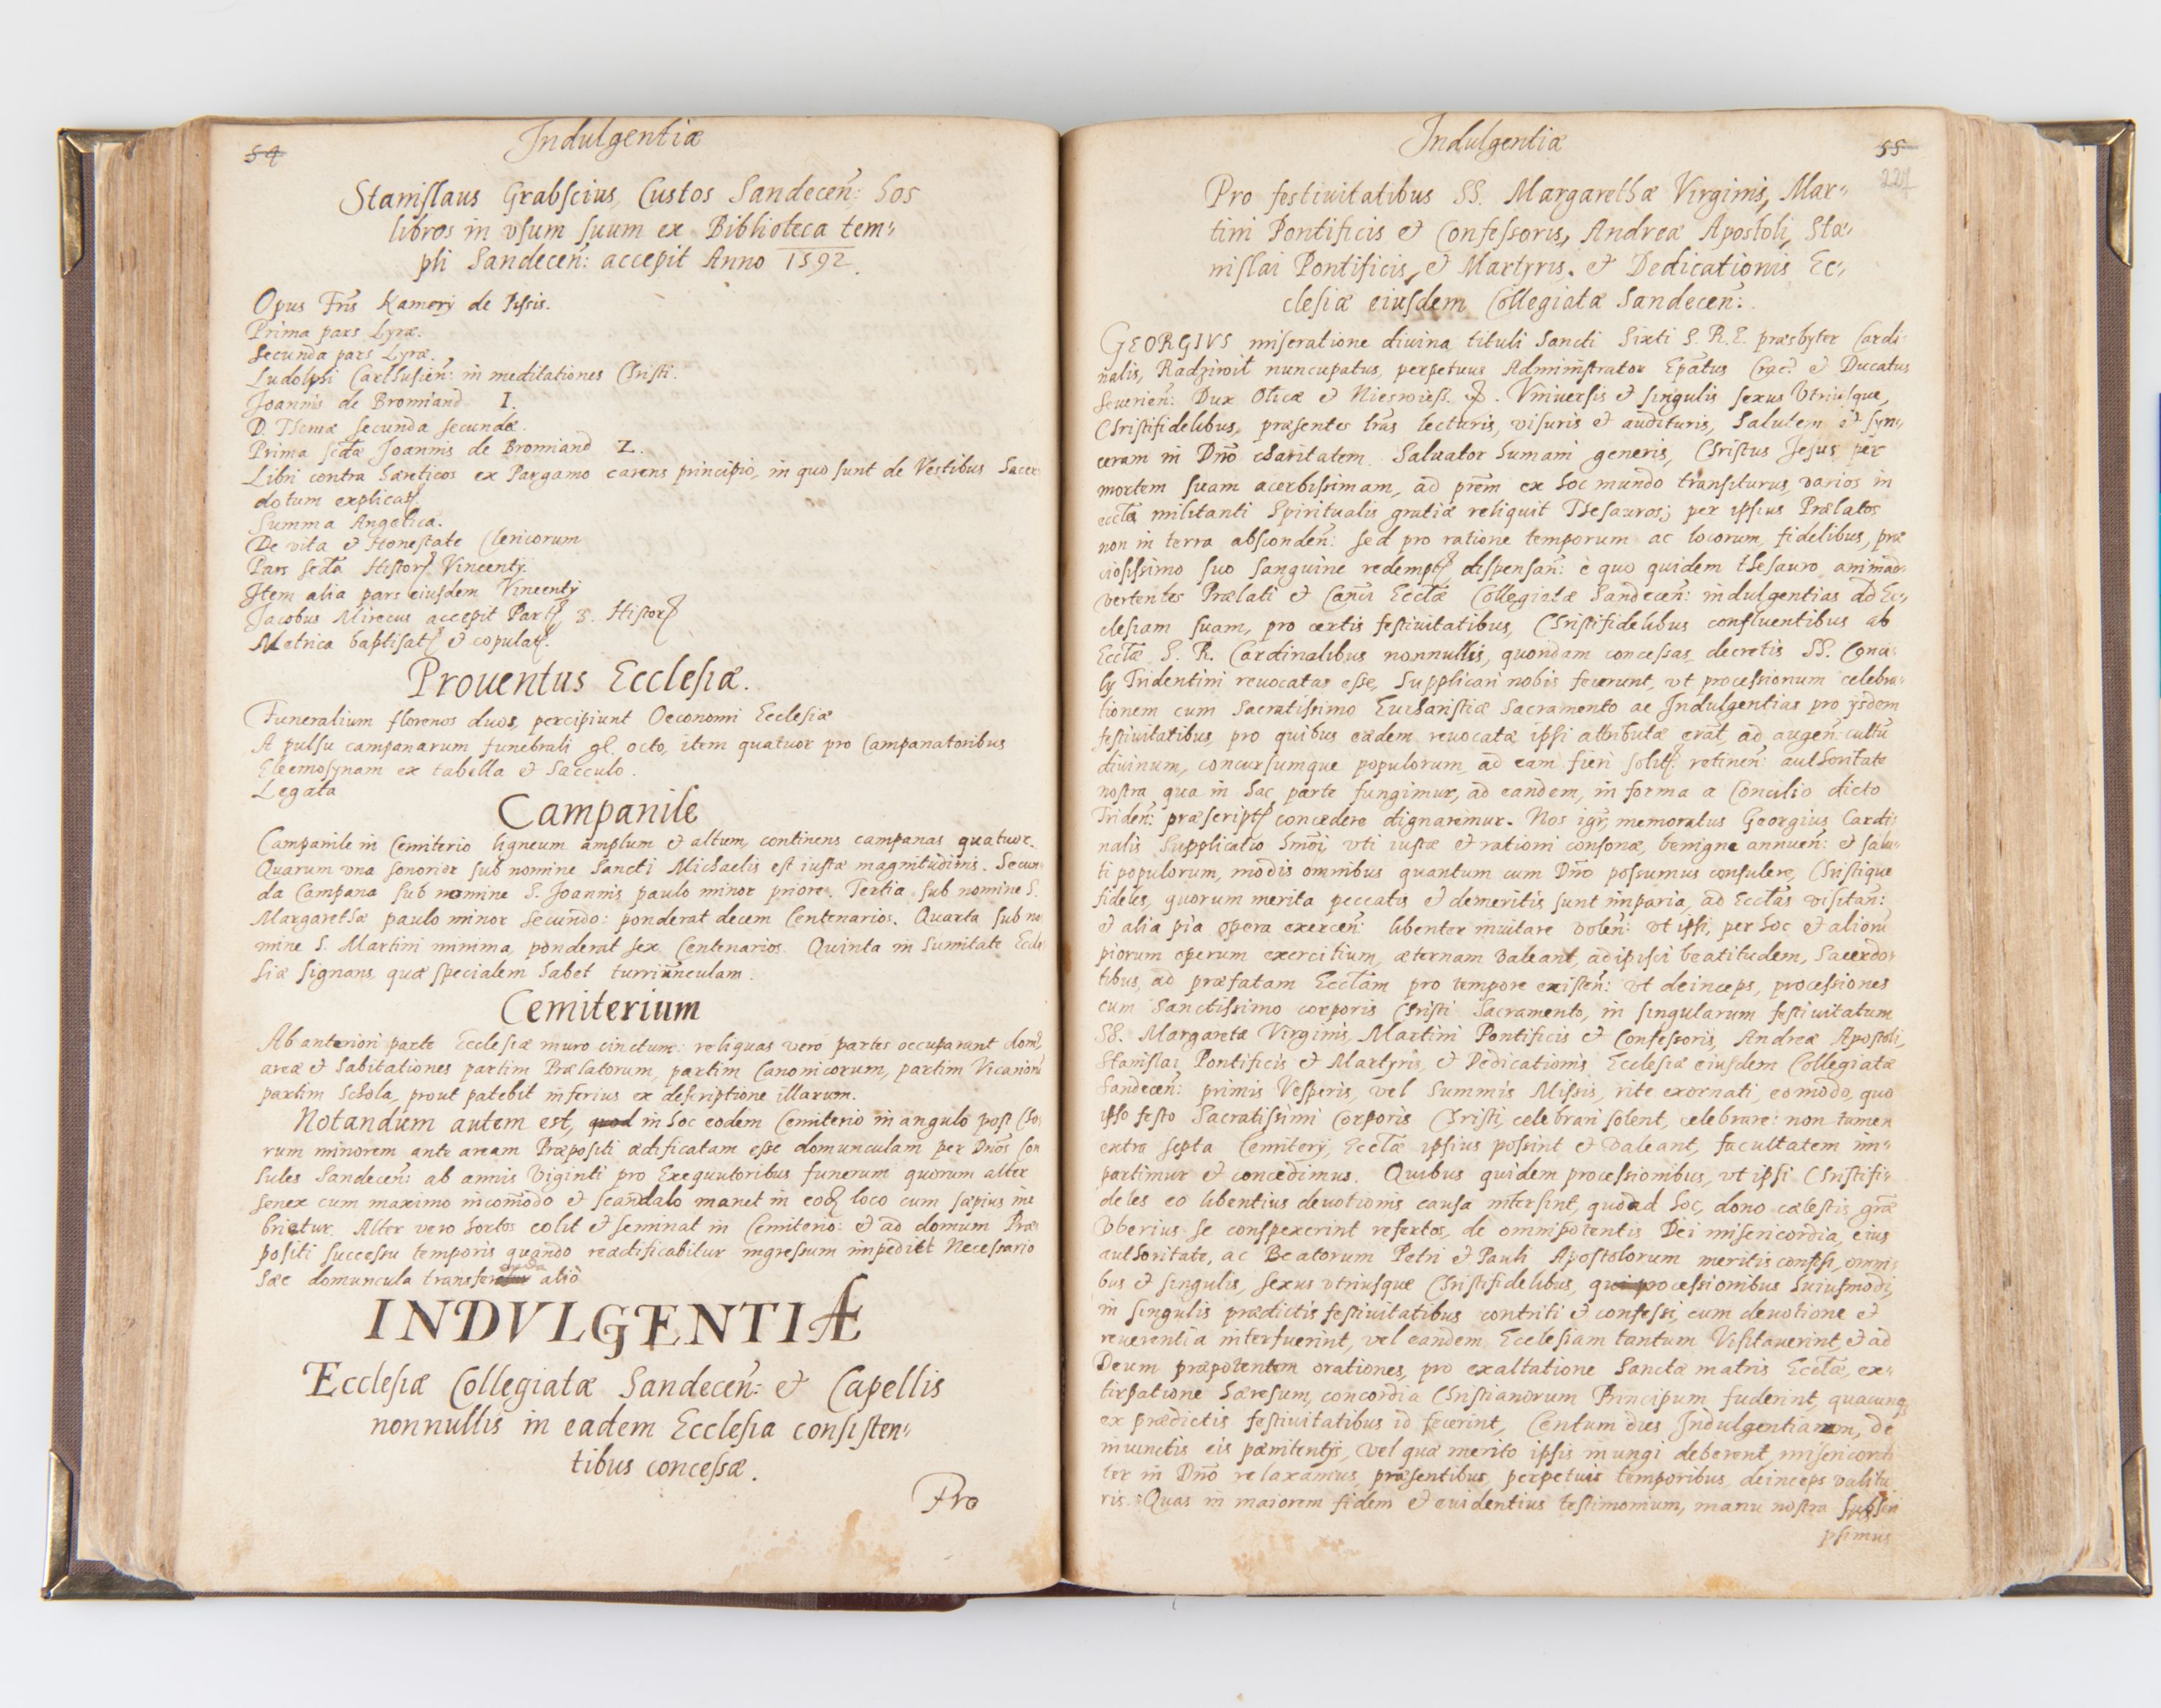 54
Indulgentiæ
Stanislaus Grabscius Custos Sandecen: hos
libros in vsum suum ex Biblioteca tem„
pli Sandecen: accepit Anno 1592.
Opus Fris de
Prima pars Lyræ.
Secunda pars Lyræ.
Ludolphi Carthusien: in meditationes Christi.
Joannis de Bromiard I.
D. Thomæ secunda secundæ.
Prima Joannis de Bromiard 2.
Libri contra hæreticos ex Pergamo carens principio, in quo sunt de Vestibus Sacer
dotum
Summa Angelica.
De vita et Honestate Clericorum
Pars Vincentij
Item alia pars eiusdem Vincentij
Jacobus accepit 3.
Metrica
Prouentus Ecclesiæ.
Funeralium florenos duos percipiunt Oeconomi Ecclesiæ
A pulsu campanarum funebrali gl. octo, item quatuor pro Campanatoribus
Eleemosynam ex tabella et Sacculo.
Legata
Campanile
Campanile in Cemiterio ligneum amplum et altum, continens campanas quatuor.
Quarum vna sonorior sub nomine Sancti Michaelis est iustæ magnitudinis. Secun„
da Campana sub nomine S. Joannis paulo minor priore. Tertia sub nomine S.
Margarethæ paulo minor secundo: ponderat decem Centenarios. Quarta sub no
mine S. Martini minima, ponderat sex Centenarios. Quinta in Sumitate Eccle
siæ signans, quæ specialem habet turriunculam.
Cemiterium
Ab anteriori parte Ecclesiæ muro cinctum: reliquas vero partes occuparunt
areæ et habitationes partim Prælatorum, partim Canonicorum, partim Vicarioru
partim Schola, prout patebit inferius ex descriptione illarum.
Notandum autem est, quod in hoc eodem Cemiterio in angulo post Cho
rum minorem ante aream Præpositi ædificatam esse domunculam per Dnos Con
sules Sandecen: ab annis viginti pro Exequutoribus funerum quorum alter
senex cum maximo incomodo et scandalo manet in loco cum sæpius ine
brietur. Alter vero hortos colit et seminat in Cemiterio: et ad domum Præ„
positi successu temporis quando reædificabitur ingressum impedit Necessario
hæc domuncula transferenda alio
INDVLGENTIÆ
Ecclesiæ Collegiatæ Sandecen: et Capellis
nonnullis in eadem Ecclesia consisten„
tibus concessæ.
Pro
Indulgentiæ
55
Pro festiuitatibus SS. Margarethæ Virginis, Mar„
tini Pontificis et Confessoris, Andreæ Apostoli, Sta„
nislai Pontificis, et Martyris. et Dedicationis Ec„
clesiæ eiusdem Collegiatæ Sandecen:
GEORGIVS miseratione diuina tituli Sancti Sixti S. R. E. præsbyter Cardi„
nalis, Radziwil nuncupatus, perpetuus Administrator Epatus Crac: et Ducatus
Seuerien: Dux Olicæ et Vniuersis et singulis sexus Vtriusque,
Christifidelibus, præsentes lras lecturis, visuris et audituris, Salutem et syn„
ceram in Dno charitatem. Saluator humani generis, Christus Jesus per
mortem suam acerbissimam, ad prem ex hoc mundo transiturus, varios in
eccla militanti Spiritualis gratiæ reliquit Thesauros; per ipsius Prælatos
non in terra absconden: sed pro ratione temporum ac locorum, fidelibus, præ
ciosissimo suo sanguine dispensan: è quo quidem thesauro animad„
vertentes Prælati et Canci Ecclæ Collegiatæ Sandecen: indulgentias ad Ec„
clesiam suam, pro certis festiuitatibus, Christifidelibus confluentibus ab
Ecclæ S. R. Cardinalibus nonnullis, quondam concessas decretis SS. Conci„
lij Tridentini reuocatas esse, Supplicari nobis fecerunt, vt processionum celebra„
tionem cum Sacratissimo Eucharistiæ Sacramento ac Indulgentias pro ijsdem
festiuitatibus, pro quibus eædem reuocatæ ipsi attributæ erat, ad augen: cultu
diuinum, concursumque populorum, ad eam fieri retinen: authoritate
nostra qua in hac parte fungimur, ad eandem, in forma a Concilio dicto
Triden: concedere dignaremur. Nos igr, memoratus Georgius Cardi„
nalis Supplicatio vti iustæ et rationi consonæ, benigne annuen: et salu„
ti populorum, modis omnibus quantum cum Dno possumus consulere, Christique
fideles, quorum merita peccatis et demeritis sunt imparia, ad Ecclas visitan:
et alia pia opera exercen: libenter inuitare volen: vt ipsi, per hoc et alioru
piorum operum exercitium, æternam valeant, adipisci beatitudem, Sacerdo„
tibus, ad præfatam Ecclam pro tempore existen: vt deinceps, processiones
cum Sanctissimo corporis Christi Sacramento, in singularum festiuitatum
SS. Margaretæ Virginis, Martini Pontificis et Confessoris, Andreæ Apostoli,
Stanislai Pontificis et Martyris, et Dedicationis Ecclesiæ eiusdem Collegiatæ
Sandecen: primis Vesperis, vel Summis Missis, rite exornati, eo modo, quo
ipso festo Sacratissimi Corporis Christi, celebrari solent, celebrare: non tamen
extra septa Cemiterij, Ecclæ ipsius possint et valeant, facultatem im„
partimur et concedimus. Quibus quidem processionibus, vt ipsi Christifi„
deles eo libentius deuotionis causa intersint, quo ad hoc, dono cælestis græ
Vberius se conspexerint refertos, de omnipotentis Dei misericordia, eius
authoritate, ac Beatorum Petri et Pauli Apostolorum meritis confisi, omni„
bus et singulis, sexus vtriusque Christifidelibus, qui processionibus huiusmodi,
in singulis prædictis festiuitatibus contriti et confessi, cum deuotione et
reuerentia interfuerint, vel eandem Ecclesiam tantum Visitauerint, et ad
Deum præpotentem orationes, pro exaltatione Sanctæ matris Ecclæ, ex„
tirpatione hæresum, concordia Christianorum Principum fuderint, quacunq
ex prædictis festiuitatibus id fecerint, Centum dies Indulgentiarum, de
iniunctis eis pænitentijs, vel quæ merito ipsis iniungi deberent, misericordi
ter in Dno relaxamus, præsentibus, perpetuis temporibus deinceps valitu
ris. Quas in maiorem fidem et euidentius testimonium, manu nostra Subscri
psimus